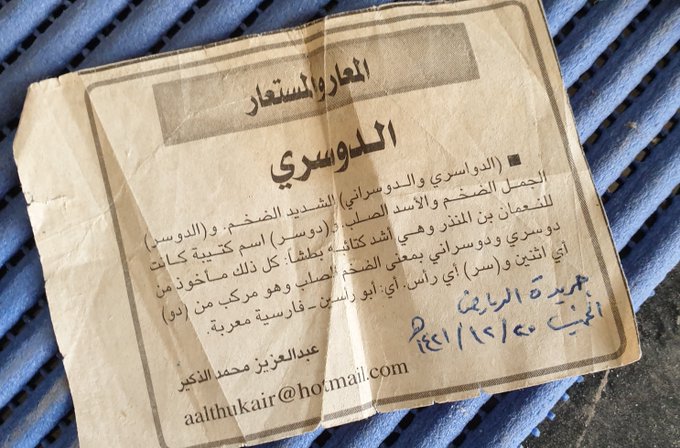 المعار والمستعار
الدوسري
■ (الدواسري والدوسراني) الشديد الضخم، و(الدوسر)
الجمل الضخم والأسد الصلب و(دوسر) اسم كتيبة كانت
للنعمان بن المنذر وهي أشد كتائبه بطشاً: كل ذلك مأخوذ من
دوسري ودوسراني بمعنى الضخم الصلب وهو مركب من (دو)
أي اثنين و(سر) أي رأس. أي: أبو رأسين - فارسية معربة.
عبدالعزيز محمد الذكير
aalthukair@hotmail.com
جريدة الرياض
الخميس
١٤٢١/١٢/٢٠هـ